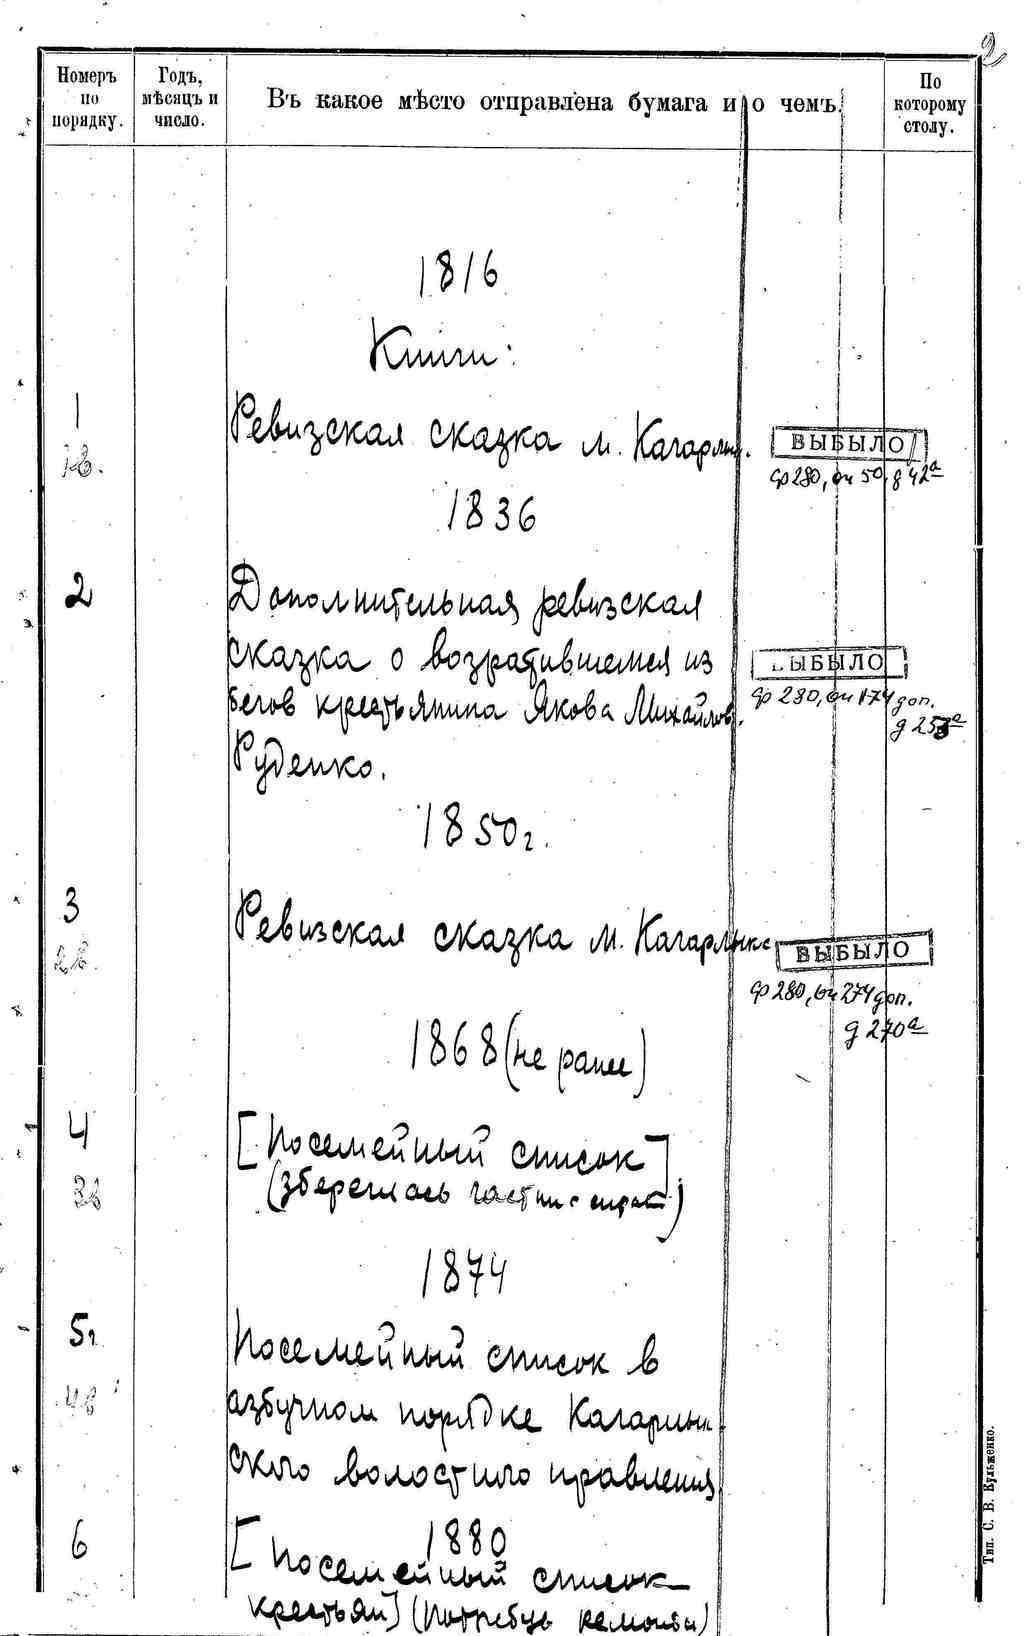 2
Номеръ по порядку.
Годъ, мѣсяцъ и число.
Въ какое мѣсто отправлена бумага и о чемъ.
По которому столу.
1816
Книги:
1
1в.
Ревизская сказка м. Кагарлык.
ВЫБЫЛО
ф 280, оп 50, д 42а
1836
2
Дополнительная ревизская
сказка о возратившемся из
бегов крестьянина Якова Михайлов.
Руденко.
ВЫБЫЛО
ф 280, оп 174 доп.
д 253а
1850 г.
3
2в.
Ревизская сказка м. Кагарлыка
ВЫБЫЛО
ф 280, оп 274 доп.
д 270а
1868 (не ранее)
4
3в
[Посемейный список]
(збереглась частин.)
1874
5
4в
Посемейный список в
азбучном порядке Кагарлык-
ского волостного правления
1880
6
[Посемейный список
крестьян] (Потребує)
Тип. С. В. Кульженко.